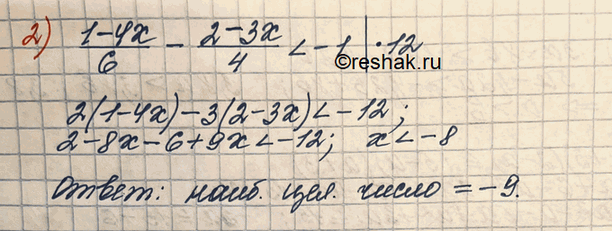 2) (1-4x)/6 - (2-3x)/4 < -1 | ·12
©reshak.ru
2(1-4x)-3(2-3x)<-12;
2-8x-6+9x<-12; x<-8
Ответ: наиб. цел. число = -9.